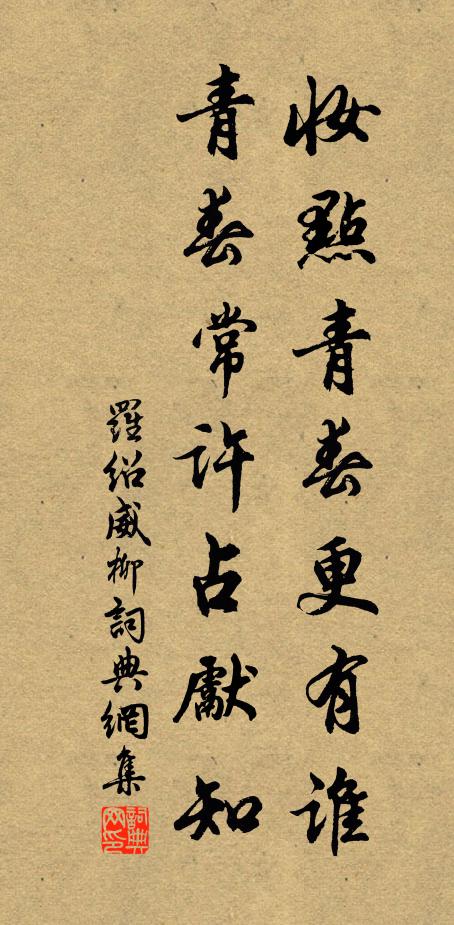 妝點青春更有誰
青春常許占獻知
羅紹威柳詞典網集
詞典网印